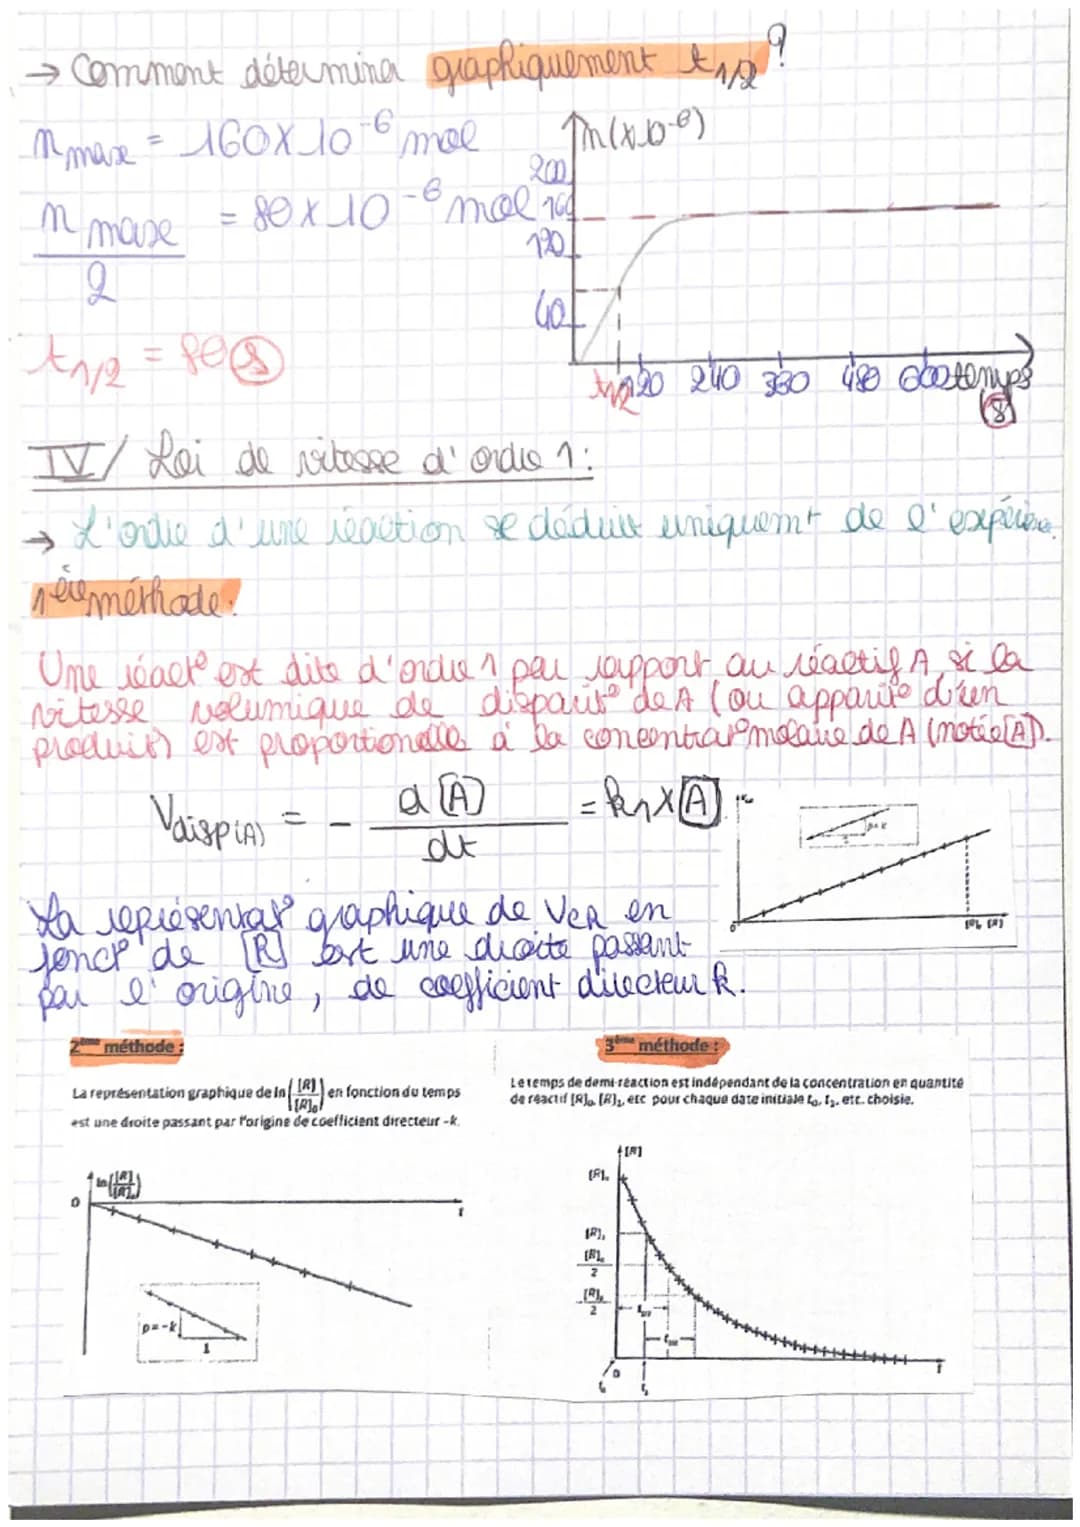 → Comment déterminer graphiquement t1/2 ?
n max = 160 x 10^-6 mol
n max / 2 = 80 x 10^-6 mol
t1/2 = 80 s
n (x10^-6)
200
160
120
40
t1/2 120 240 360 480 600 temps (s)
IV/ Loi de vitesse d'ordre 1 :
→ L'ordre d'une réaction se déduit uniquemt de l'expérience.
1ère méthode :
Une réact° est dite d'ordre 1 par rapport au réactif A si la
vitesse volumique de disparit° de A (ou apparit° d'un
produit) est proportionelle à la concentrat° molaire de A (notée [A]).
Vdisp(A) = - d[A]/dt = k1 x [A]
0 [R]0 [R]
p=k
La représentat° graphique de VCR en
fonct° de [R] est une droite passant
par l'origine, de coefficient directeur k.
2ème méthode :
La représentation graphique de ln([R]/[R]0) en fonction du temps
est une droite passant par l'origine de coefficient directeur -k.
ln([R]/[R]0)
0 t
p=-k
1
3ème méthode :
Le temps de demi-réaction est indépendant de la concentration en quantité
de réactif [R]0, [R]1, etc pour chaque date initiale t0, t1, etc. choisie.
[R]
[R]0
[R]1
[R]0/2
[R]1/2
t1/2
t1/2
0 t
t0 t1